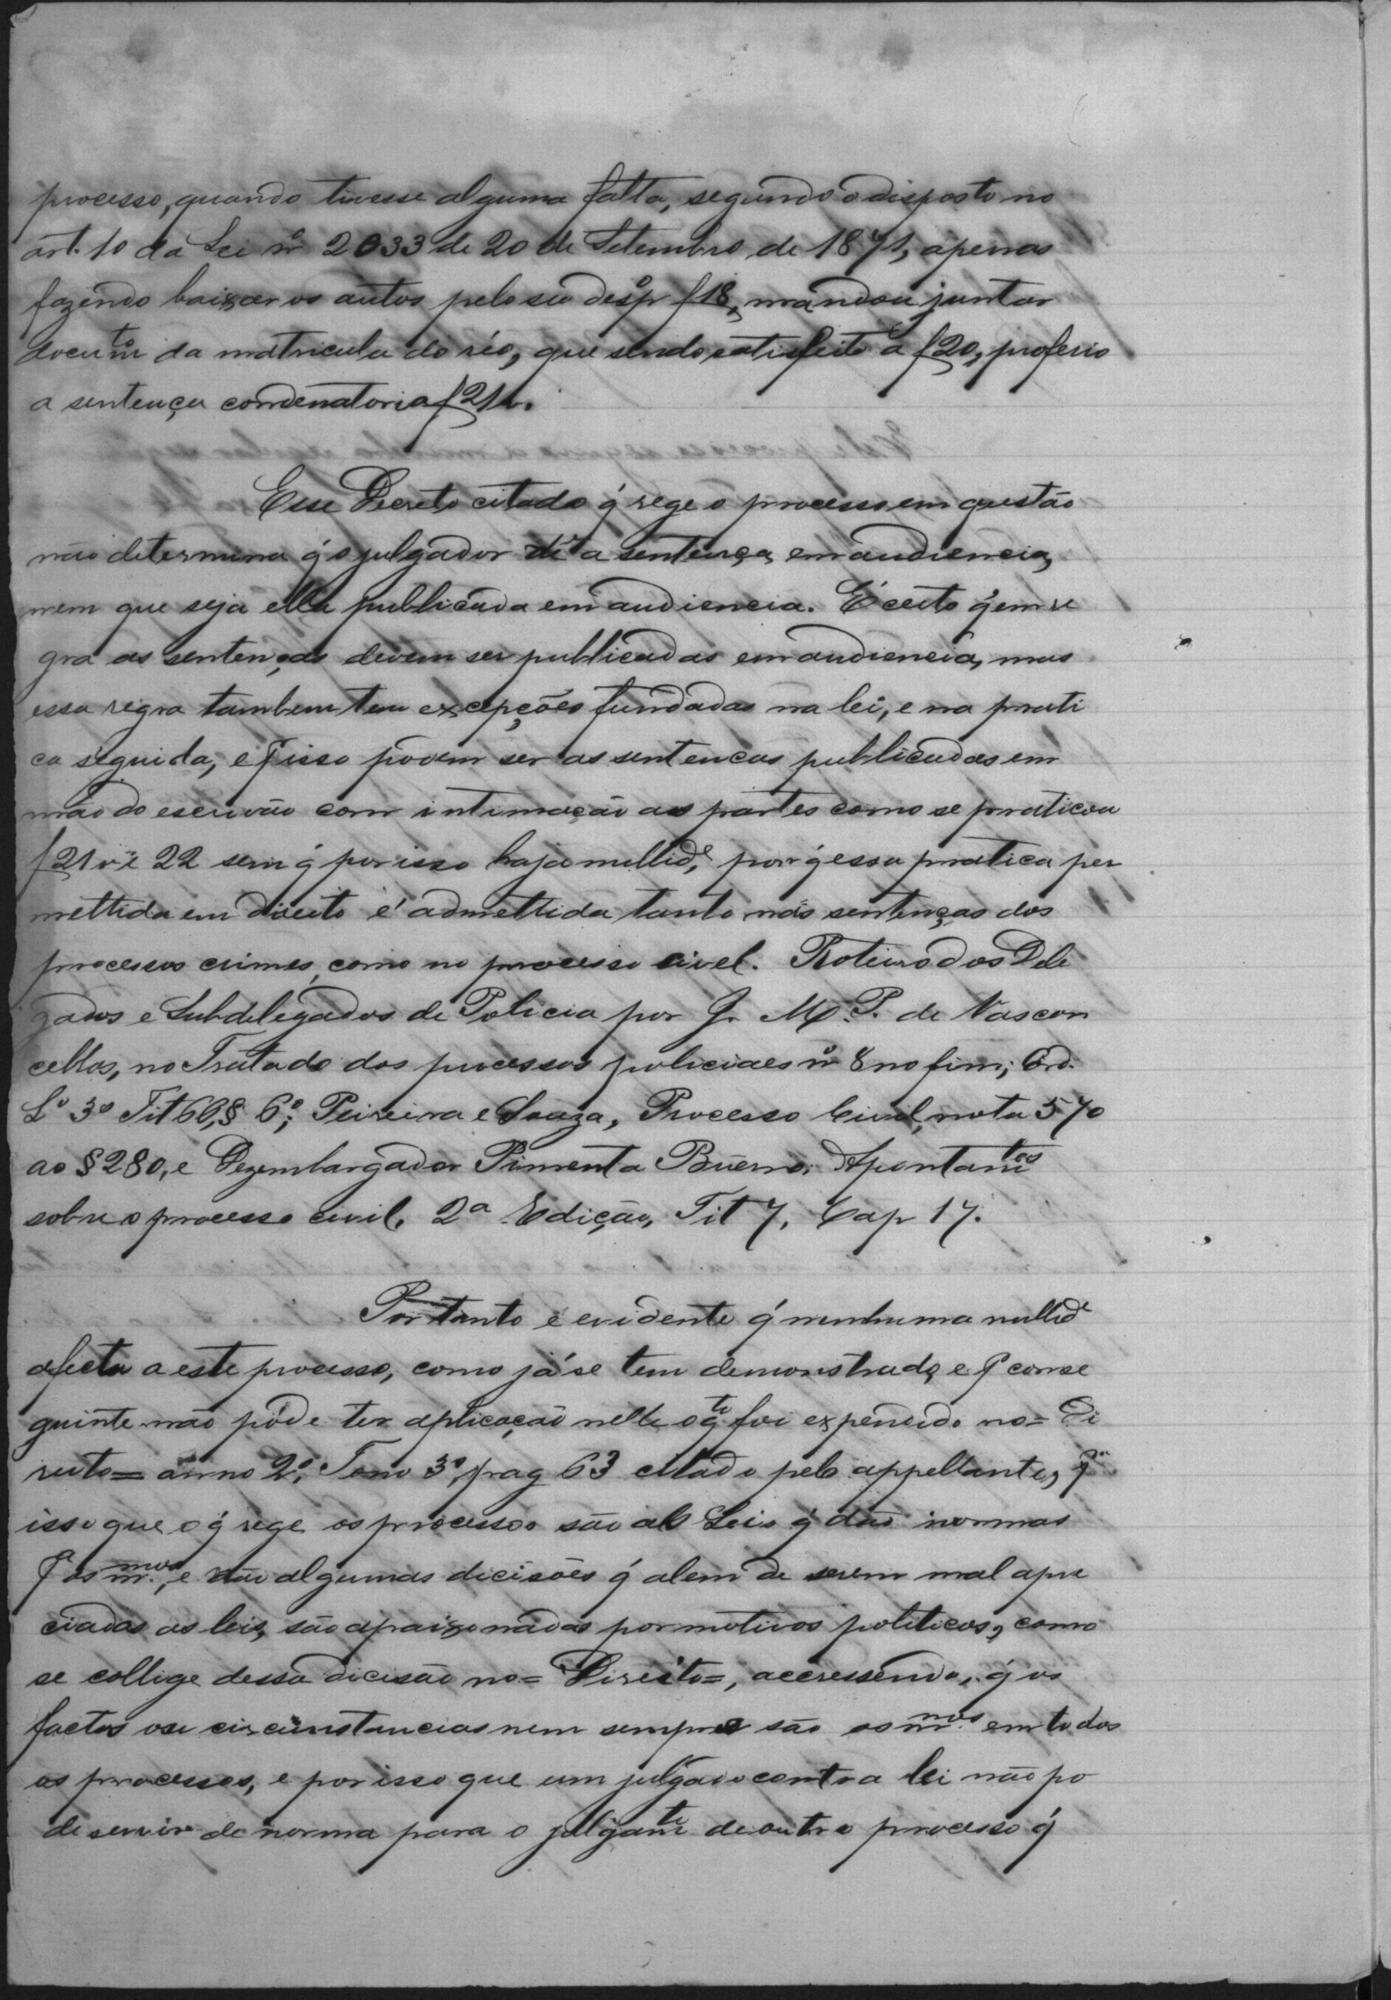 processo, quando tivesse alguma falta, segundo o disposto no
art. 10 da Lei nº 2033 de 20 de Setembro de 1871, apenas
fazendo baixar os autos pelo seu despº f 18, mandou juntar
documto da matricula do réo, que sendo satisfeito a f 20, proferio
a sentença condenatoria f 21v.
Esse Decreto citado q̃ rege o processo em questão
não determina q̃ o julgador dê a sentença em audiencia,
nem que seja ella publicada em audiencia. É certo q̃ em re
gra as sentenças devem ser publicadas em audiencia, mas
essa regra tambem tem excepções fundadas na lei, e na prati
ca seguida, e pr isso podem ser as sentencas publicadas em
mão do escrivão com intimação as partes como se praticou
f 21v e 22 sem q̃ por isso haja nullide, por q̃ essa pratica per
mettida em direito é admettida tanto nas sentenças dos
processos crimes, como no processo civel. Roteiro dos Dele
gados e Subdelegados de Policia por J. M. P. de Vascon
cellos, no Tratado dos processos policiaes nº 8 no fim; Ord.
Lº 3º Tit 66, § 6º; Pereira e Souza, Processo Civil, nota 570
ao § 280, e Dezembargador Pimenta Bueno. Apontamtos
sobre o processo civil, 2ª Edição, Tit 7, Cap 17.
Portanto é evidente q̃ nenhuma nullide
afecta a este processo, como já se tem demonstrado, e pr conse
guinte não póde ter aplicação nelle o q̃ foi expendido no = Di
reito = anno 2º, Tomo 3º, pag 63 citado pelo appellante, pr
isso que o q̃ rege os processos são as Leis q̃ dão normas
pa os mmos, e não algumas dicisões q̃ alem de serem mal apre
ciadas as leis, são apaixonadas por motivos politicos, como
se collige dessa dicisão no = Direito =, accressendo, q̃ os
factos ou circunstancias nem sempre são os mmos em todos
os processos, e por isso que um julgado contra lei não po
de servir de norma para o julgamto de outro processo q̃